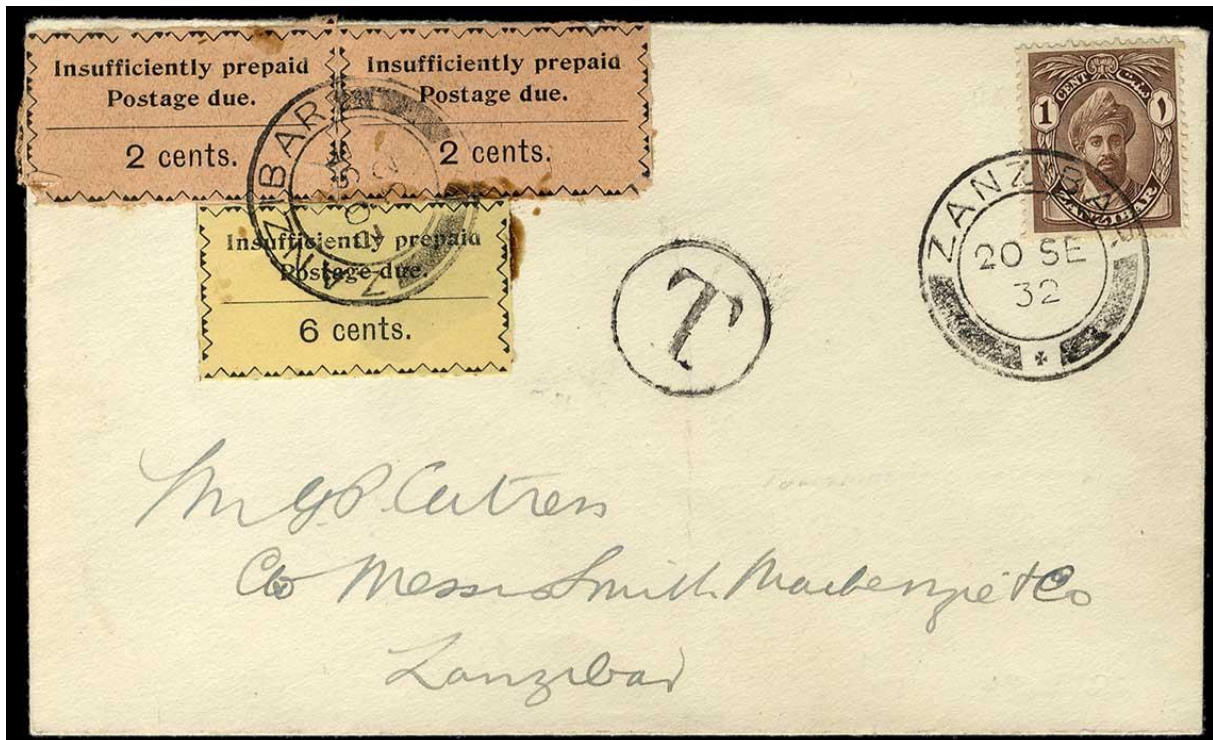 Insufficiently prepaid
Postage due.
2 cents.
Insufficiently prepaid
Postage due.
2 cents.
Insufficiently prepaid
Postage due.
6 cents.
ZANZIBAR
CENT
1
١
ZANZIBAR
ZANZIBAR
20 SE
32
T
Mr G.P.
C/o Messrs Smith Mackenzie & Co
Zanzibar